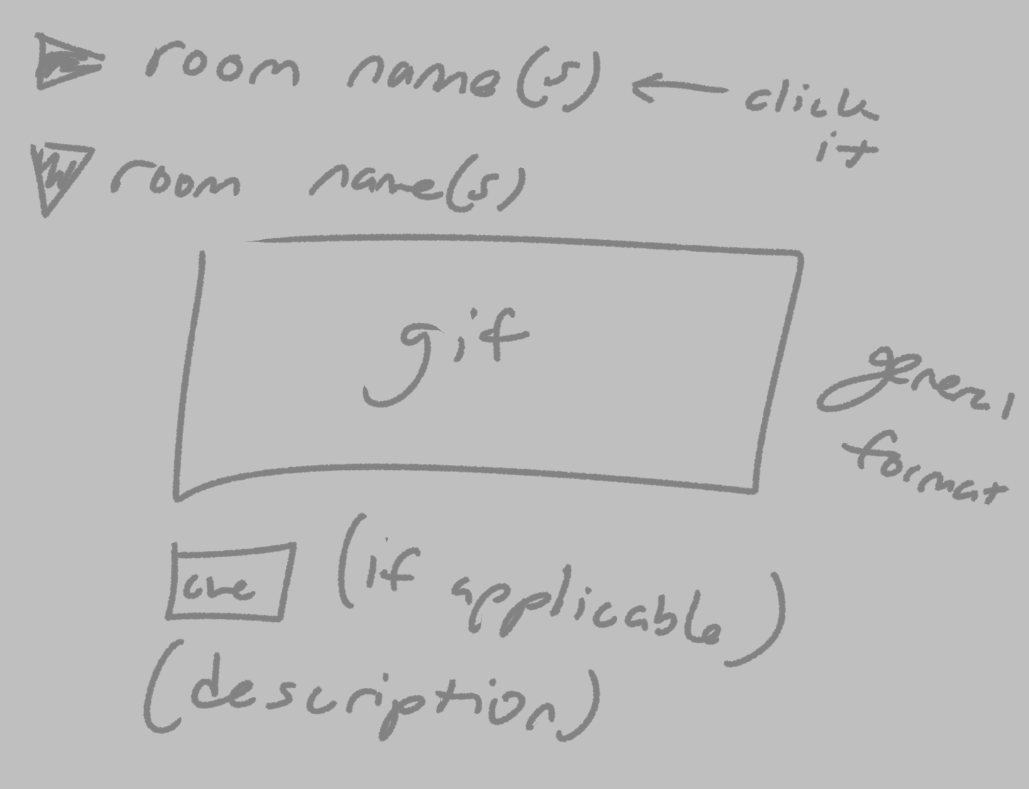 room name(s) ← click
it
room name(s)
gif
general
format
cue (if applicable)
(description)